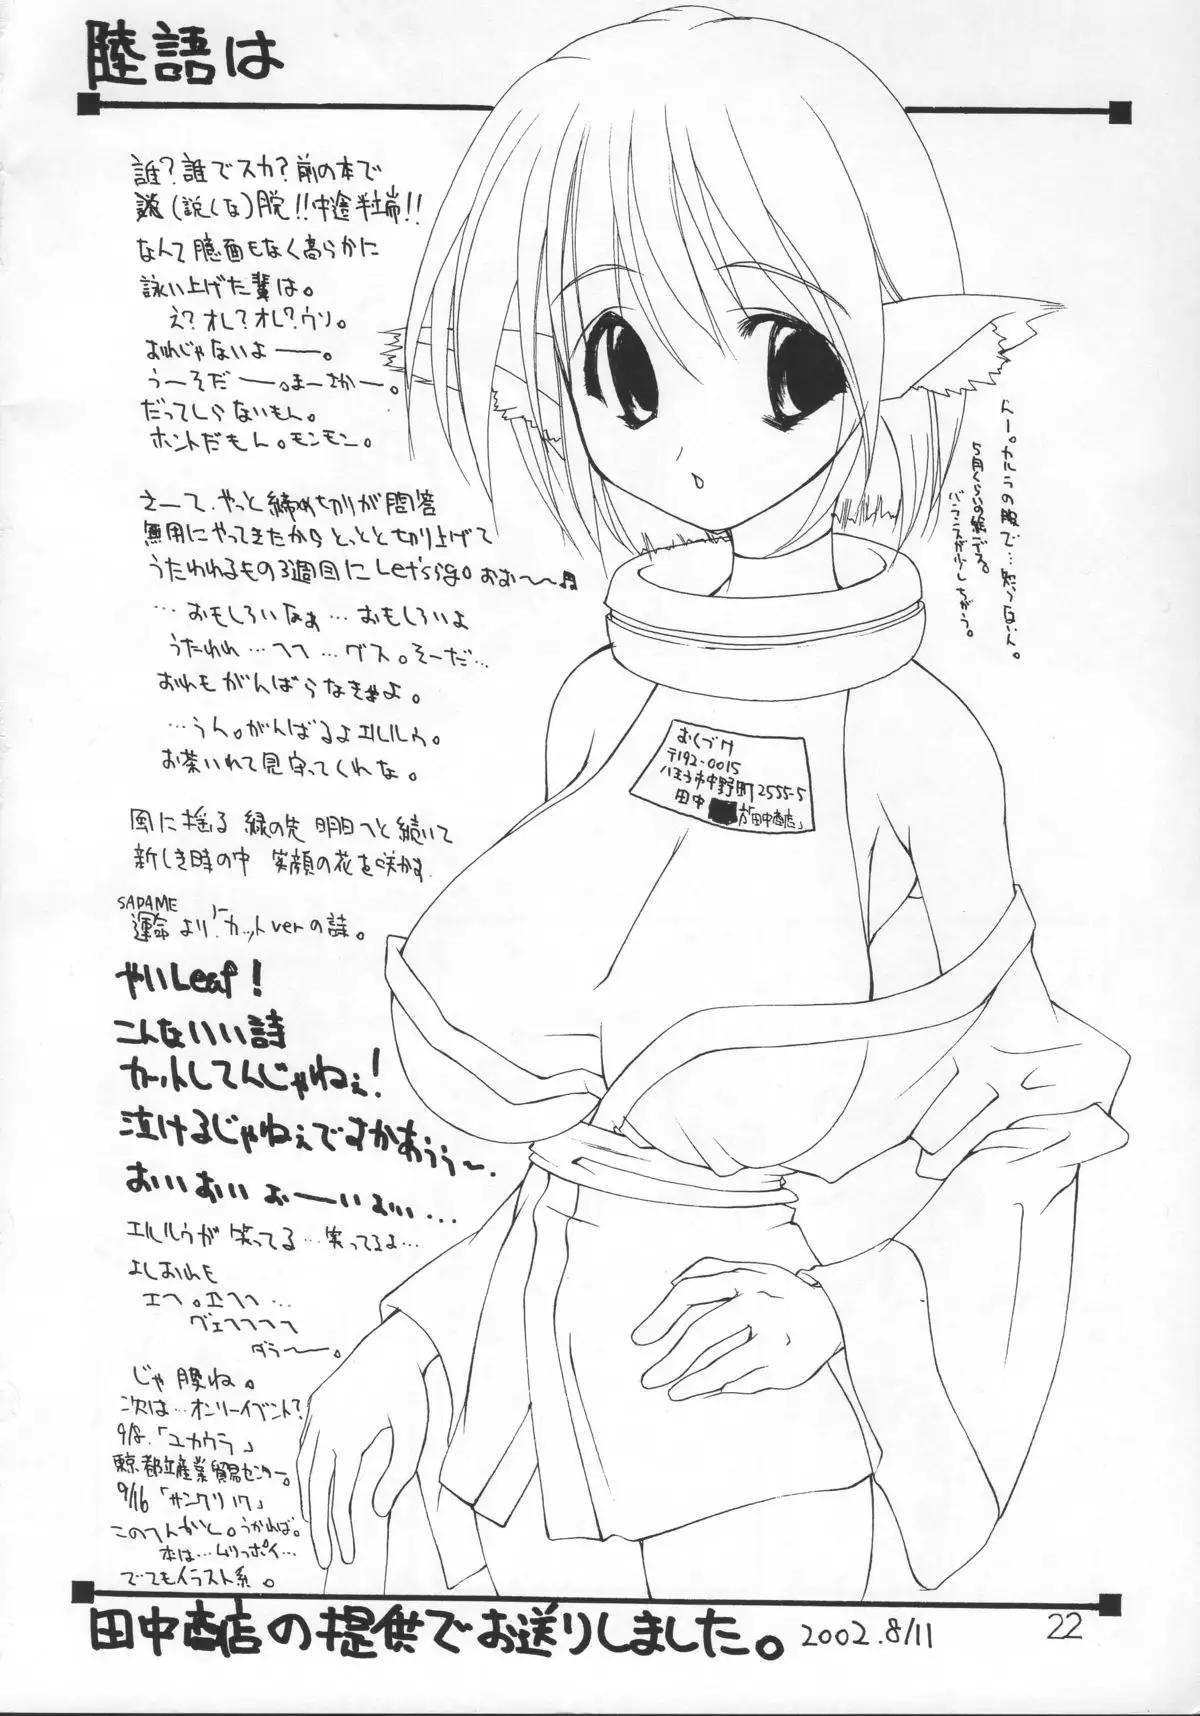 陸語は
誰?誰でスカ?前の本で
(説くな)脱!!中途半端!!
なんて臆面もなく高らかに
詠い上げた輩は。
え?オレ?オレ?ウソ。
おれじゃないよーー。
うーそだーー。まーさかー。
だってしらないもん。
ホントだもん。モンモン。
さーて、やっと締め切りが問答
無用にやってきたからとっとと切り上げて
うたわれるもの3週目にLet'sgo。おお〜〜♫
…おもしろいなぁ…おもしろいよ
うたわれ…へへ…グス。そーだ…
おれもがんばらなきゃよ。
…うん。がんばるよエルルゥ。
お茶いれて見守ってくれな。
風に揺る 緑の先 明日へと続いて
新しき時の中 笑顔の花を咲かす
SADAME
運命 より カットverの詩。
やいLeaf!
こんないい詩
カットしてんじゃねぇ!
泣けるじゃねぇですかあぅぅ〜、
おいおいぉーいぉぃ…
エルルゥが笑ってる…笑ってるよ…
よしおれも
エヘ。エヘヘ…
グェヘヘヘヘ
ダラ〜〜。
じゃ腰ね。
次は…オンリーイベント?
9/8.「ユカウラ」
東京都立産業貿易センター。
9/16「サンクリ17」
このへんかと。うかれば。
本は…ムリっポイ…
でてもイラスト系。
んー。カルラの服で…知らないん。
5月くらいの絵デス。
バランスが少しちがう。
おくづけ
〒192-0015
八王子市中野町2555-5
田中 が「田中商店」
田中商店の提供でお送りしました。2002.8/11
22